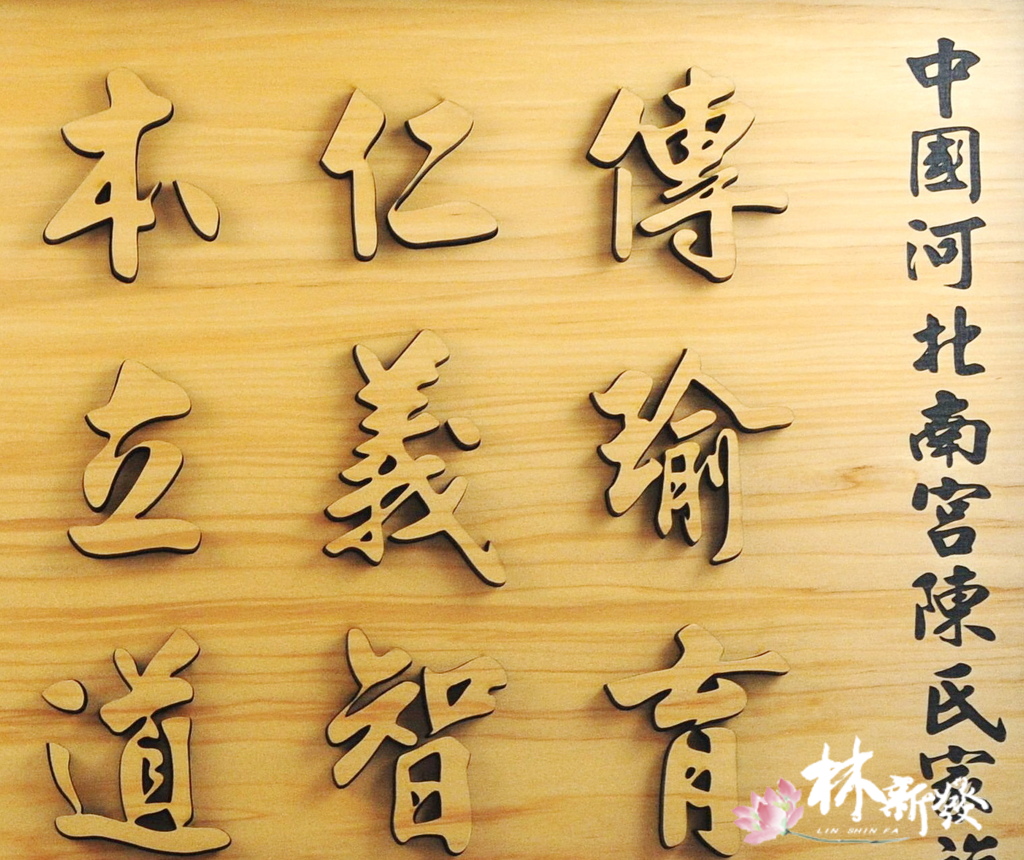 中國河北南宮陳氏家
傳瑜育
仁義智
本立道
林新發
LIN SHIN FA